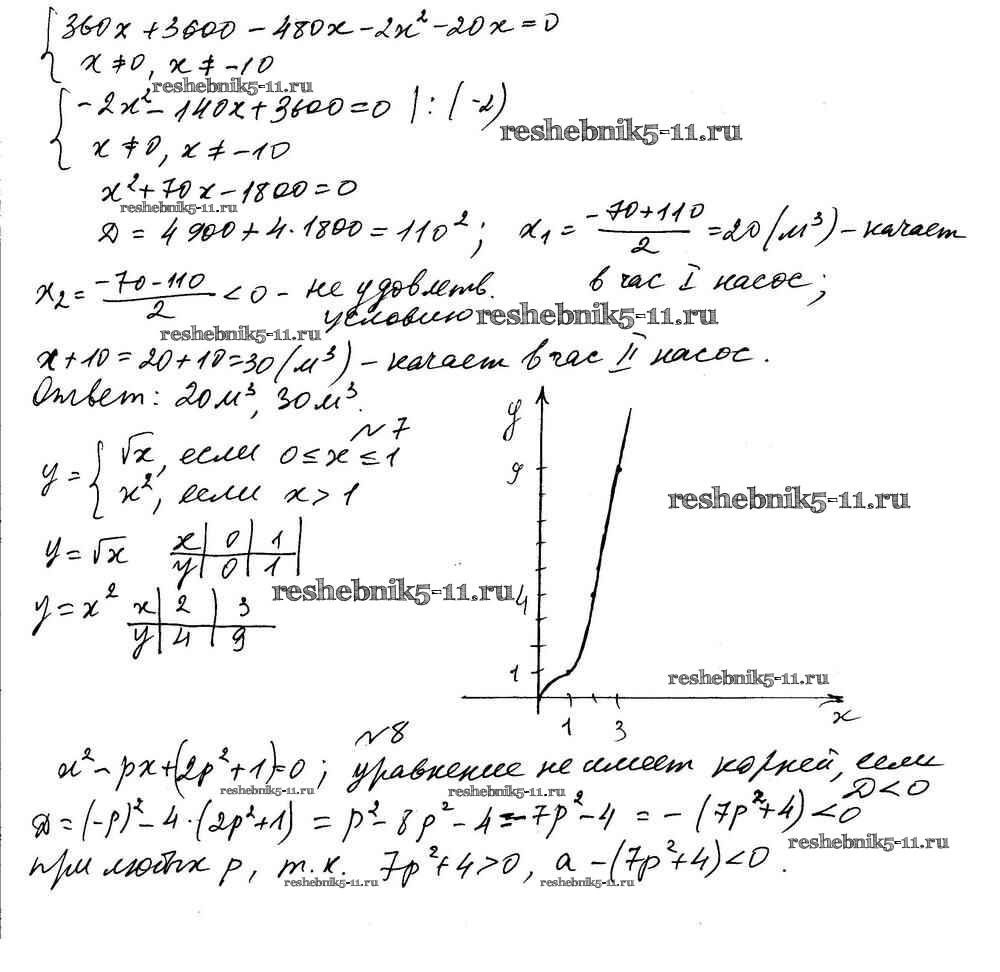 360x + 3600 - 480x - 2x² - 20x = 0
x ≠ 0, x ≠ -10
reshebnik5-11.ru
-2x² - 140x + 3600 = 0 | : (-2)
reshebnik5-11.ru
x ≠ 0, x ≠ -10
x² + 70x - 1800 = 0
reshebnik5-11.ru
Д = 4900 + 4·1800 = 110²; x₁ = (-70+110)/2 = 20 (м³) - качает
в час I насос;
x₂ = (-70-110)/2 < 0 - не удовлетв.
условию
reshebnik5-11.ru
reshebnik5-11.ru
x + 10 = 20 + 10 = 30 (м³) - качает в час II насос.
Ответ: 20м³, 30м³.
№7
y = { √x, если 0 ≤ x ≤ 1
x², если x > 1
y = √x x | 0 | 1 |
y | 0 | 1 |
reshebnik5-11.ru
y = x² x | 2 | 3
y | 4 | 9
y
9
4
1
1 3
x
reshebnik5-11.ru
reshebnik5-11.ru
№8
x² - px + (2p² + 1) = 0; уравнение не имеет корней, если
Д < 0
reshebnik5-11.ru
reshebnik5-11.ru
Д = (-p)² - 4·(2p² + 1) = p² - 8p² - 4 = -7p² - 4 = -(7p² + 4) < 0
reshebnik5-11.ru
при любых p, т.к. 7p² + 4 > 0, а -(7p² + 4) < 0.
reshebnik5-11.ru
reshebnik5-11.ru